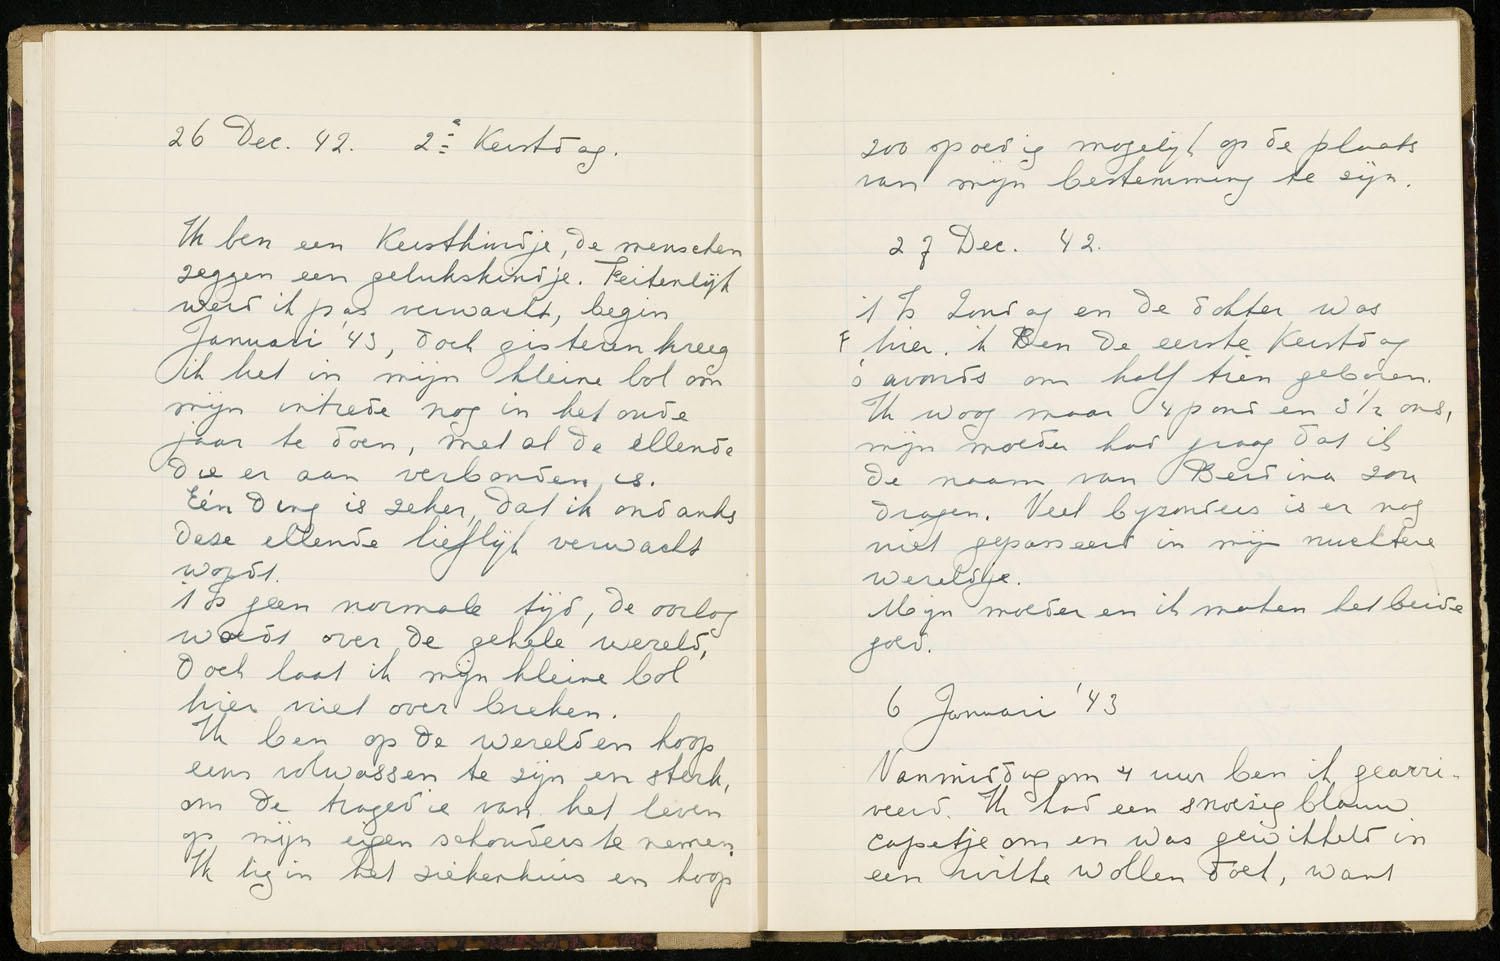 26 Dec. 42. 2e Kerstdag.
Ik ben een Kerstkindje, de menschen
zeggen een gelukskindje. Feitenlijk
werd ik pas verwacht, begin
Januari '43, doch gisteren kreeg
ik het in mijn kleine bol om
mijn intrede nog in het oude
jaar te doen, met al de ellende
die er aan verbonden is.
Eén ding is zeker, dat ik ondanks
deze ellende lieflijk verwacht
wordt.
't Is geen normale tijd, de oorlog
woedt over de gehele wereld,
doch laat ik mijn kleine bol
hier niet over breken.
Ik ben op de wereld en hoop
eens volwassen te zijn en sterk,
om de tragedie van het leven
op mijn eigen schouders te nemen.
Ik lig in het ziekenhuis en hoop
zoo spoedig mogelijk op de plaats
van mijn bestemming te zijn.
27 Dec. 42.
't Is Zondag en de dokter was
hier. Ik Ben de eerste Kerstdag
's avonds om half tien geboren.
Ik woog maar 4 pond en 3 1/2 ons,
mijn moeder had graag dat ik
de naam van Berdina zou
dragen. Veel byzonders is er nog
niet gepasseerd in mijn nuchtere
wereldje.
Mijn moeder en ik maken het beide
goed.
6 Januari '43
Vanmiddag om 4 uur ben ik gearri-
veerd. Ik had een snoezig blauw
capetje om en was gewikkeld in
een witte wollen doek, want